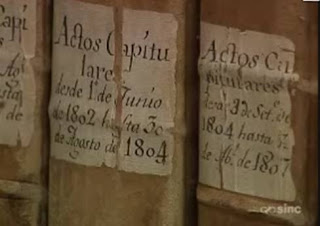 Actos Capitu
lares
desde 1º de Junio
de 1802 hasta 30
de Agosto de 1804
Actos Ca
pitulares
desde 3 de Set.e
1804 hasta
de Ab.l de 1807
sinc